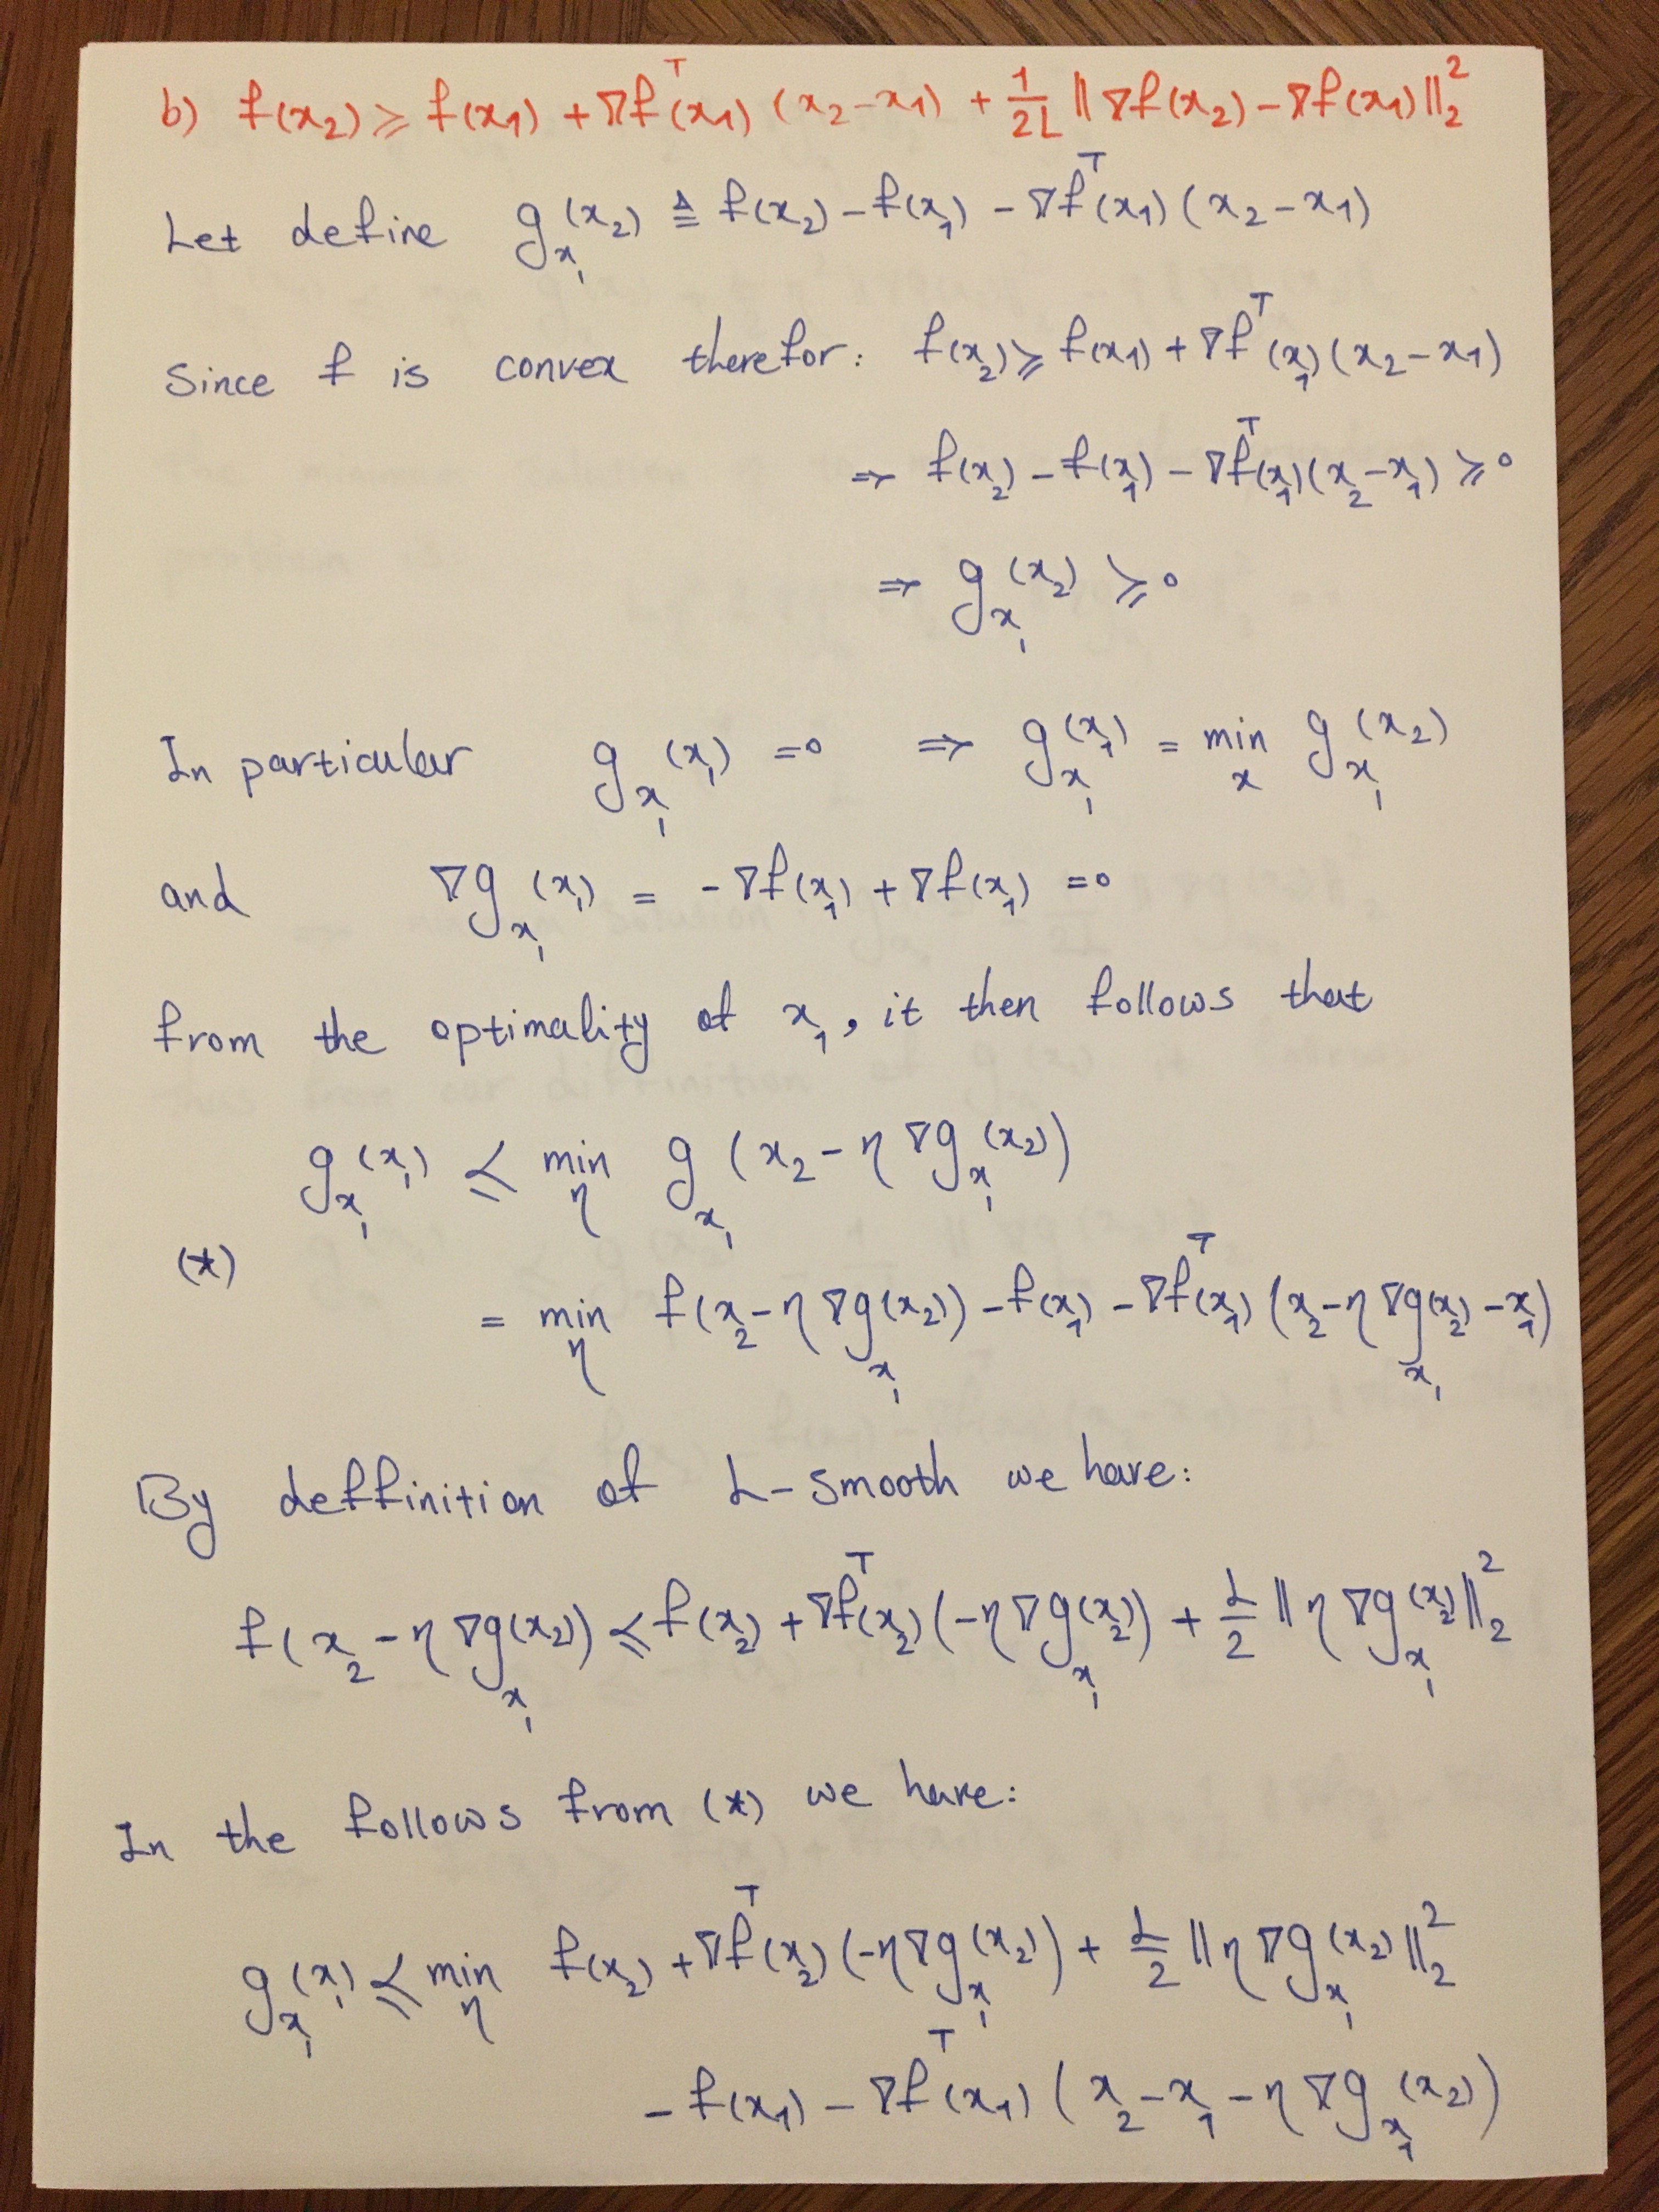 b) f(x₂) ⩾ f(x₁) + ∇fᵀ(x₁) (x₂-x₁) + 1/2L ‖∇f(x₂) - ∇f(x₁)‖₂²
Let define g_x₁(x₂) ≜ f(x₂) - f(x₁) - ∇fᵀ(x₁) (x₂-x₁)
Since f is convex therefor: f(x₂) ⩾ f(x₁) + ∇fᵀ(x₁) (x₂-x₁)
⇒ f(x₂) - f(x₁) - ∇fᵀ(x₁)(x₂-x₁) ⩾ 0
⇒ g_x₁(x₂) ⩾ 0
In particular g_x₁(x₁) = 0 ⇒ g_x₁(x₁) = min_x g_x₁(x₂)
and ∇g_x₁(x₁) = -∇f(x₁) + ∇f(x₁) = 0
from the optimality of x₁, it then follows that
g_x₁(x₁) ⩽ min_η g_x₁(x₂ - η ∇g_x₁(x₂))
(*)
= min_η f(x₂ - η ∇g_x₁(x₂)) - f(x₁) - ∇fᵀ(x₁) (x₂ - η ∇g_x₁(x₂) - x₁)
By deffinition of L-smooth we have:
f(x₂ - η ∇g_x₁(x₂)) ⩽ f(x₂) + ∇fᵀ(x₂) (-η ∇g_x₁(x₂)) + L/2 ‖η ∇g_x₁(x₂)‖₂²
In the follows from (*) we have:
g_x₁(x₁) ⩽ min_η f(x₂) + ∇fᵀ(x₂) (-η ∇g_x₁(x₂)) + L/2 ‖η ∇g_x₁(x₂)‖₂²
- f(x₁) - ∇fᵀ(x₁) (x₂ - x₁ - η ∇g_x₁(x₂))